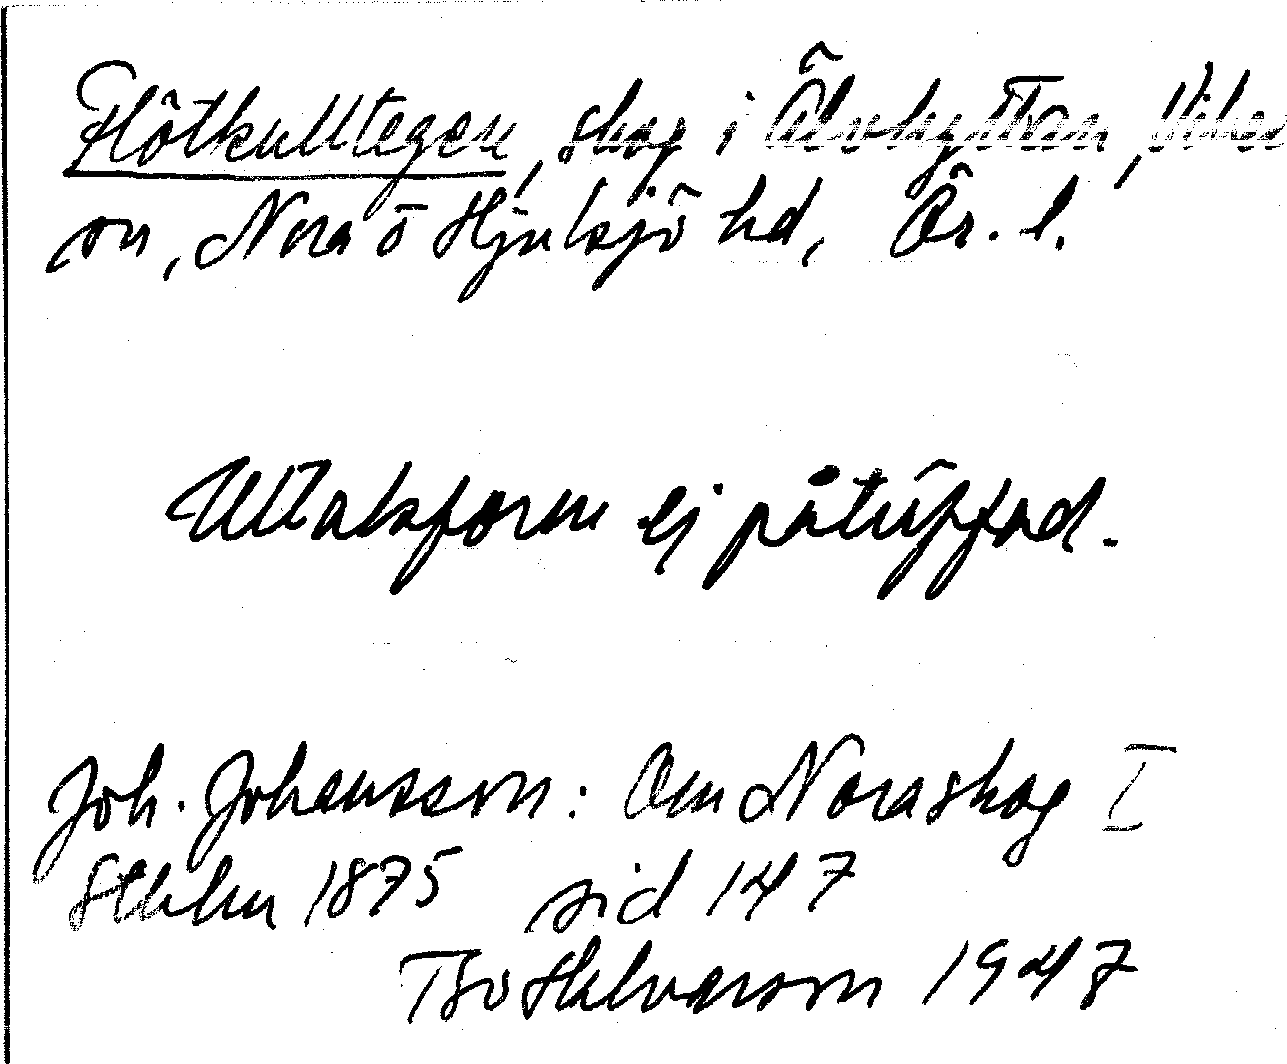 Flôtkulltegen, skog i Älvhyttan, Viker
sn, Nora ō Hjulsjö hd, Ör. l.
Uttalsform ej påträffad.
Joh. Johansson: Om Noraskog I
Sthlm 1875 sid 147
Halvarson 1947